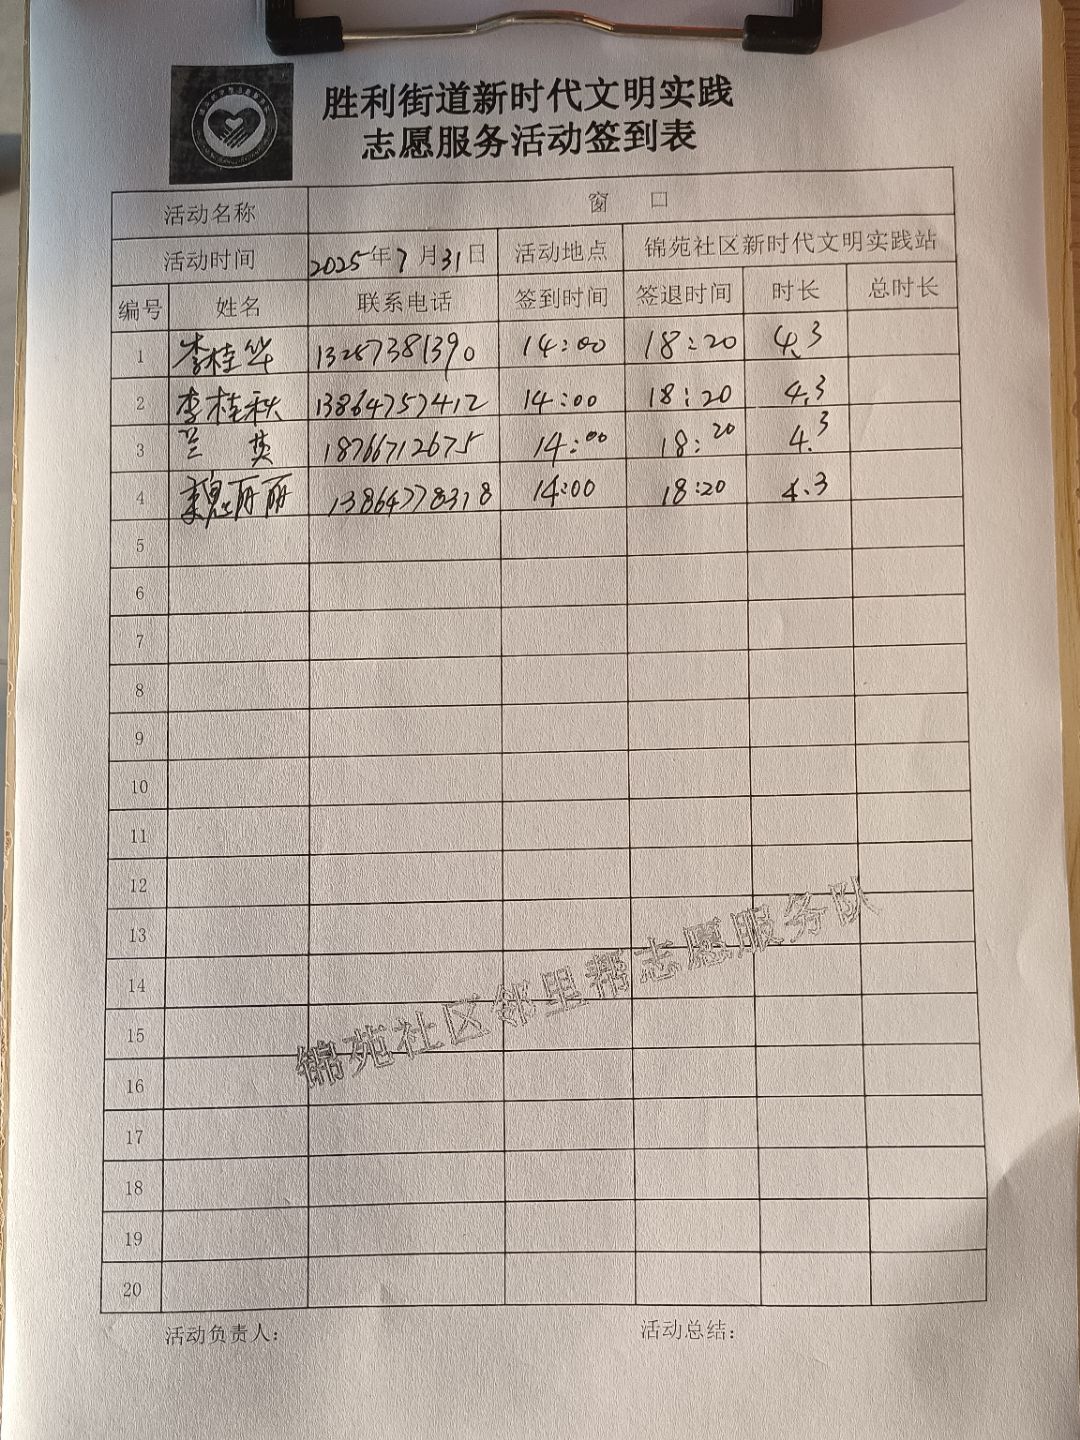 胜利街道新时代文明实践
志愿服务活动签到表
活动名称 窗 口
活动时间 2025年7月31日 活动地点 锦苑社区新时代文明实践站
编号 姓名 联系电话 签到时间 签退时间 时长 总时长
1 李桂华 14:00 18:20 4.3
2 李桂秋 13864757412 14:00 18:20 4.3
3 兰英 18766712675 14:00 18:20 4.3
4 魏丽丽 13864778318 14:00 18:20 4.3
5
6
7
8
9
10
11
12
13
14
15
16
17
18
19
20
锦苑社区邻里帮志愿服务队
活动负责人: 活动总结: